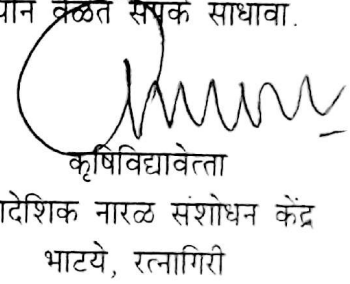 यान वेळेत संपर्क साधावा.
कृषिविद्यावेत्ता
ादेशिक नारळ संशोधन केंद्र
भाटये, रत्नागिरी